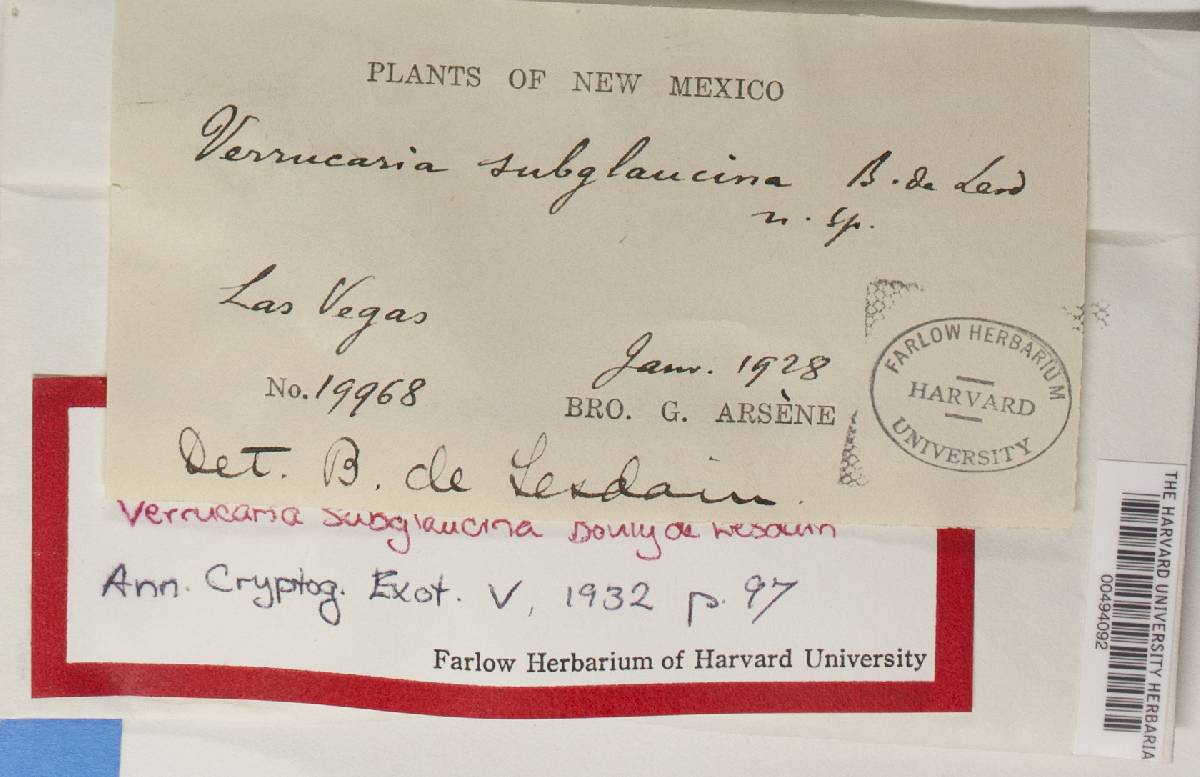 PLANTS OF NEW MEXICO
Verrucaria subglaucina B. de Lesd
n. sp.
Las Vegas
Janv. 1928
No. 19968
BRO. G. ARSÈNE
FARLOW HERBARIUM
HARVARD
UNIVERSITY
Det. B. de Lesdain.
Verrucaria subglaucina Bouly de Lesdain
Ann. Cryptog. Exot. V, 1932 p. 97
Farlow Herbarium of Harvard University
THE HARVARD UNIVERSITY HERBARIA
00494092